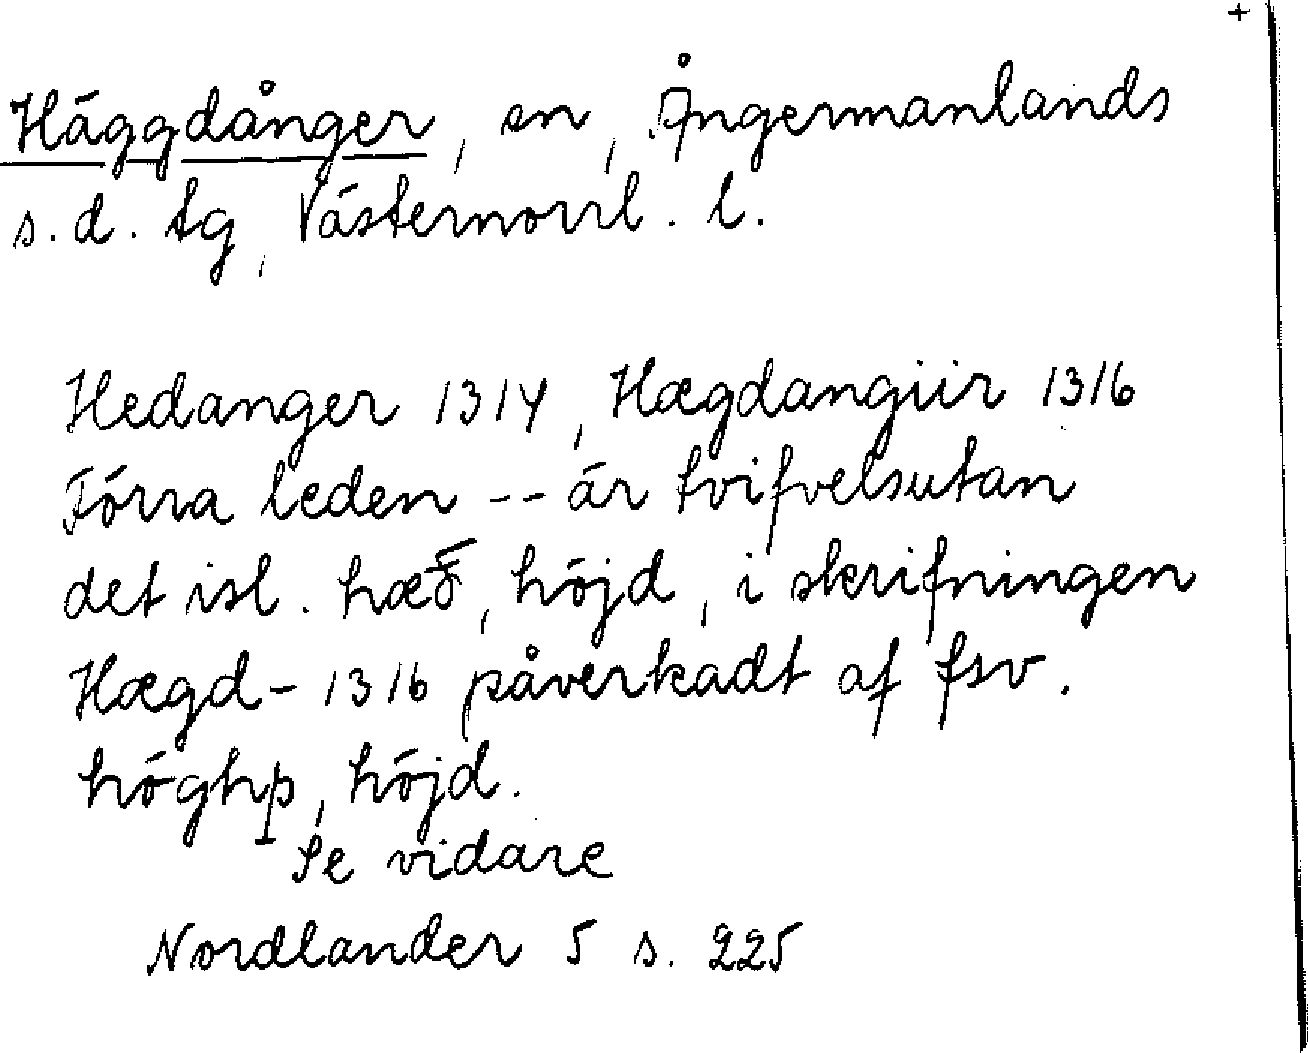 +
Häggdånger, sn, Ångermanlands
s. d. tg, Västernorrl. l.
Hedanger 1314, Hægdangiir 1316
Förra leden -- är tvifvelsutan
det isl. hæð, höjd, i skrifningen
Hægd- 1316 påverkadt af fsv.
höghþ, höjd.
Se vidare
Nordlander 5 s. 225